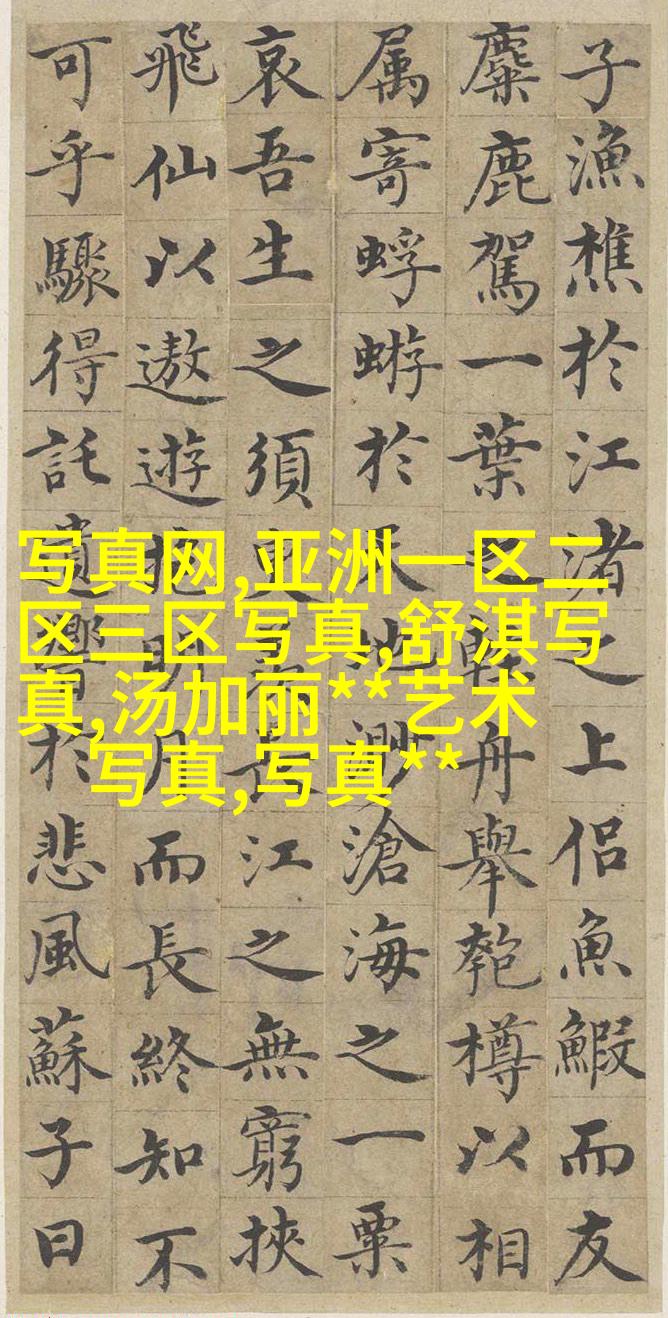 子漁樵於江渚之上侣魚鰕而友
麋鹿駕一葉之舟舉匏樽以相
属寄蜉蝣於天地渺滄海之一粟
哀吾生之須臾羡長江之無窮挾
飛仙以遨遊抱明月而長終知不
可乎驟得託遺響於悲風蘇子曰
写真网,亚洲一区二
区三区写真,舒淇写
真,汤加丽**艺术
写真,写真**